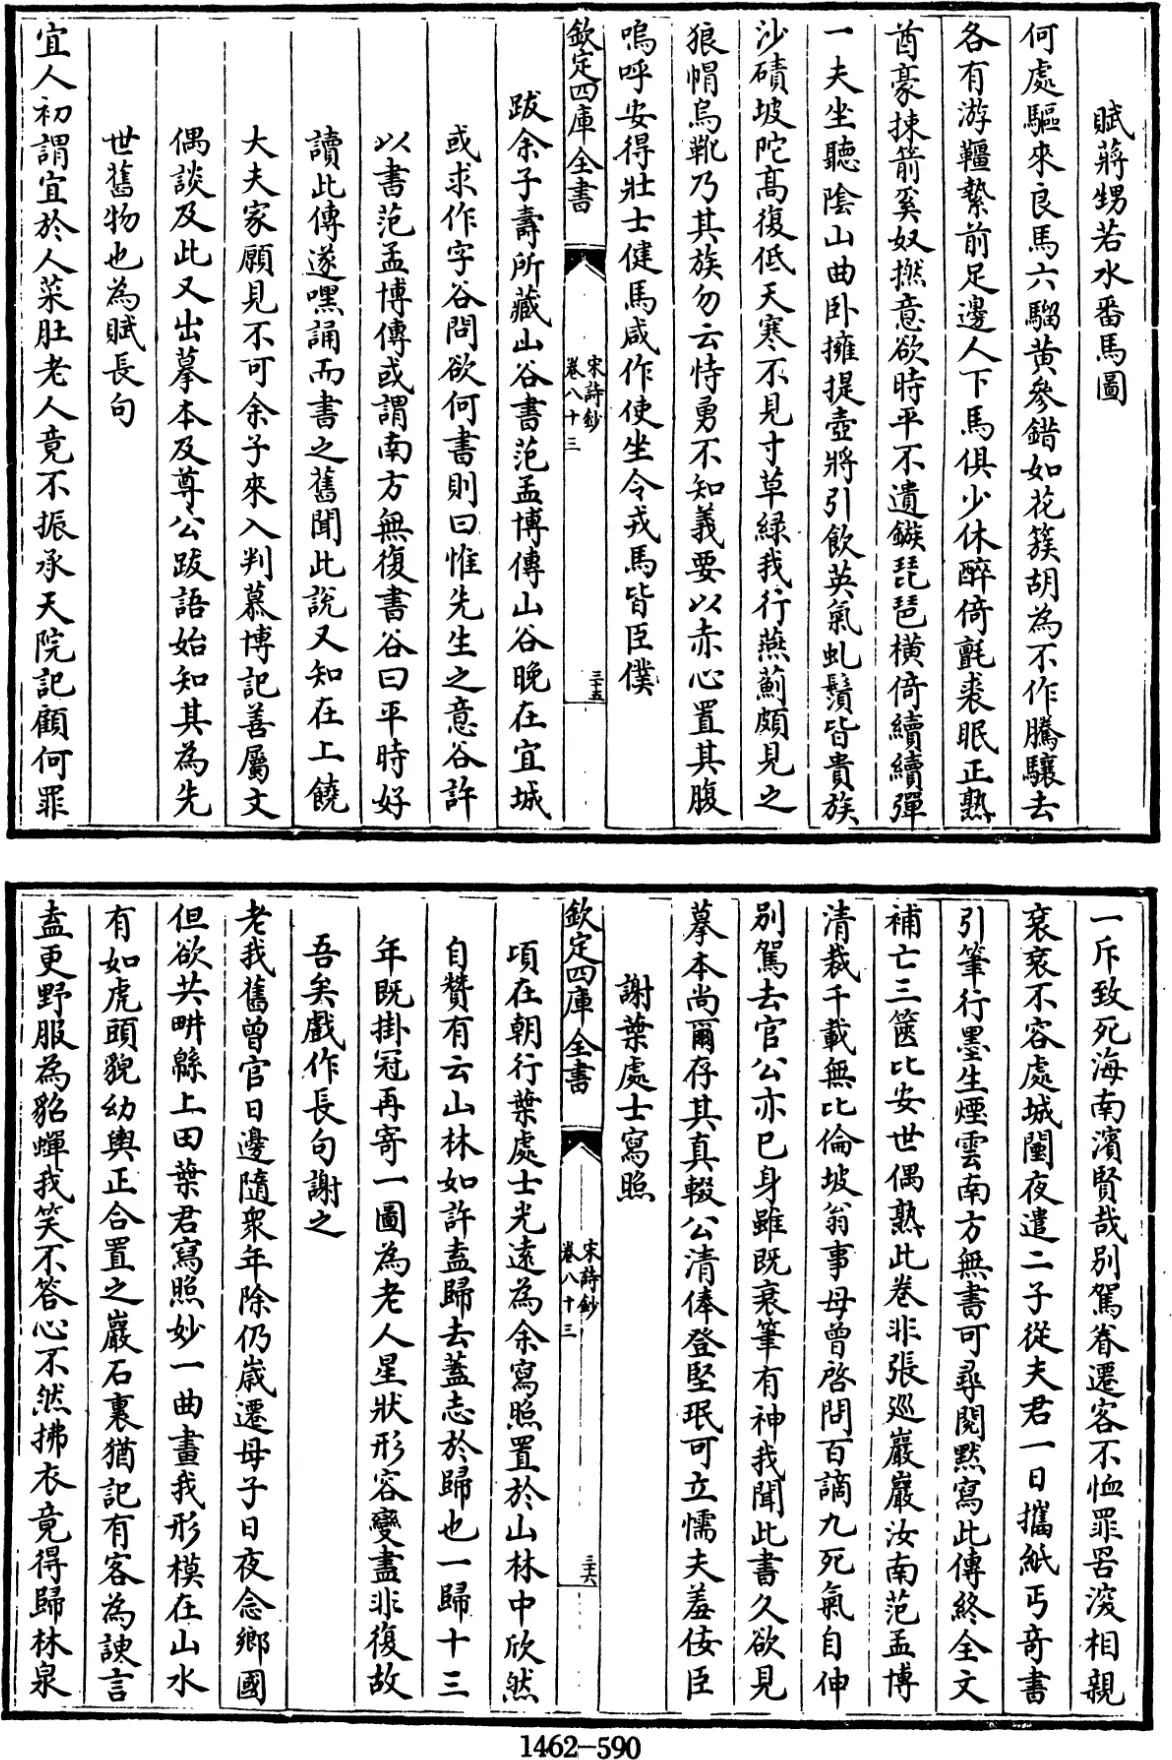 賦蔣甥若水番馬圖
何處驅來良馬六騮黄參錯如花簇胡為不作騰驤去
各有游韁縶前足邊人下馬俱少休醉倚氈裘眠正熟
酋豪揀箭奚奴撚意欲時平不遺鏃琵琶橫倚續續彈
一夫坐聽陰山曲卧擁提壺將引飲英氣虬鬚皆貴族
沙磧坡陀髙復低天寒不見寸草緑我行燕薊頗見之
狼帽烏靴乃其族勿云恃勇不知義要以赤心置其腹
嗚呼安得壯士健馬咸作使坐令戎馬皆臣僕
欽定四庫全書
宋詩鈔
卷八十三
三十五
跋余子壽所藏山谷書范孟博傳山谷晚在宜城
或求作字谷問欲何書則曰惟先生之意谷許
以書范孟博傳或謂南方無復書谷曰平時好
讀此傳遂嘿誦而書之舊聞此說又知在上饒
大夫家願見不可余子來入判慕博記善屬文
偶談及此又出摹本及尊公跋語始知其為先
世舊物也為賦長句
宜人初謂宜於人菜肚老人竟不振承天院記顧何罪
一斥致死海南濱賢哉別駕眷遷客不恤罪罟深相親
哀哀不容處城闉夜遣二子從夫君一日攜紙丐奇書
引筆行墨生煙雲南方無書可尋閱黙寫此傳終全文
補亡三篋比安世偶熟此卷非張廵巖巖汝南范孟博
清裁千載無比倫坡翁事母曾啓問百謫九死氣自伸
別駕去官公亦已身雖既衰筆有神我聞此書久欲見
摹本尚爾存其真輟公清俸登堅珉可立懦夫羞佞臣
謝葉處士寫照
欽定四庫全書
宋詩鈔
卷八十三
三十六
頃在朝行葉處士光遠為余寫照置於山林中欣然
自贊有云山林如許盍歸去蓋志於歸也一歸十三
年既掛冠再寄一圖為老人星狀形容變盡非復故
吾矣戲作長句謝之
老我舊曾官日邊隨衆年除仍歲遷母子日夜念鄉國
但欲共畊緜上田葉君寫照妙一曲畫我形模在山水
有如虎頭貌幼輿正合置之巖石裏猶記有客為諫言
盍更野服為貂蟬我笑不答心不然拂衣竟得歸林泉
1462-590